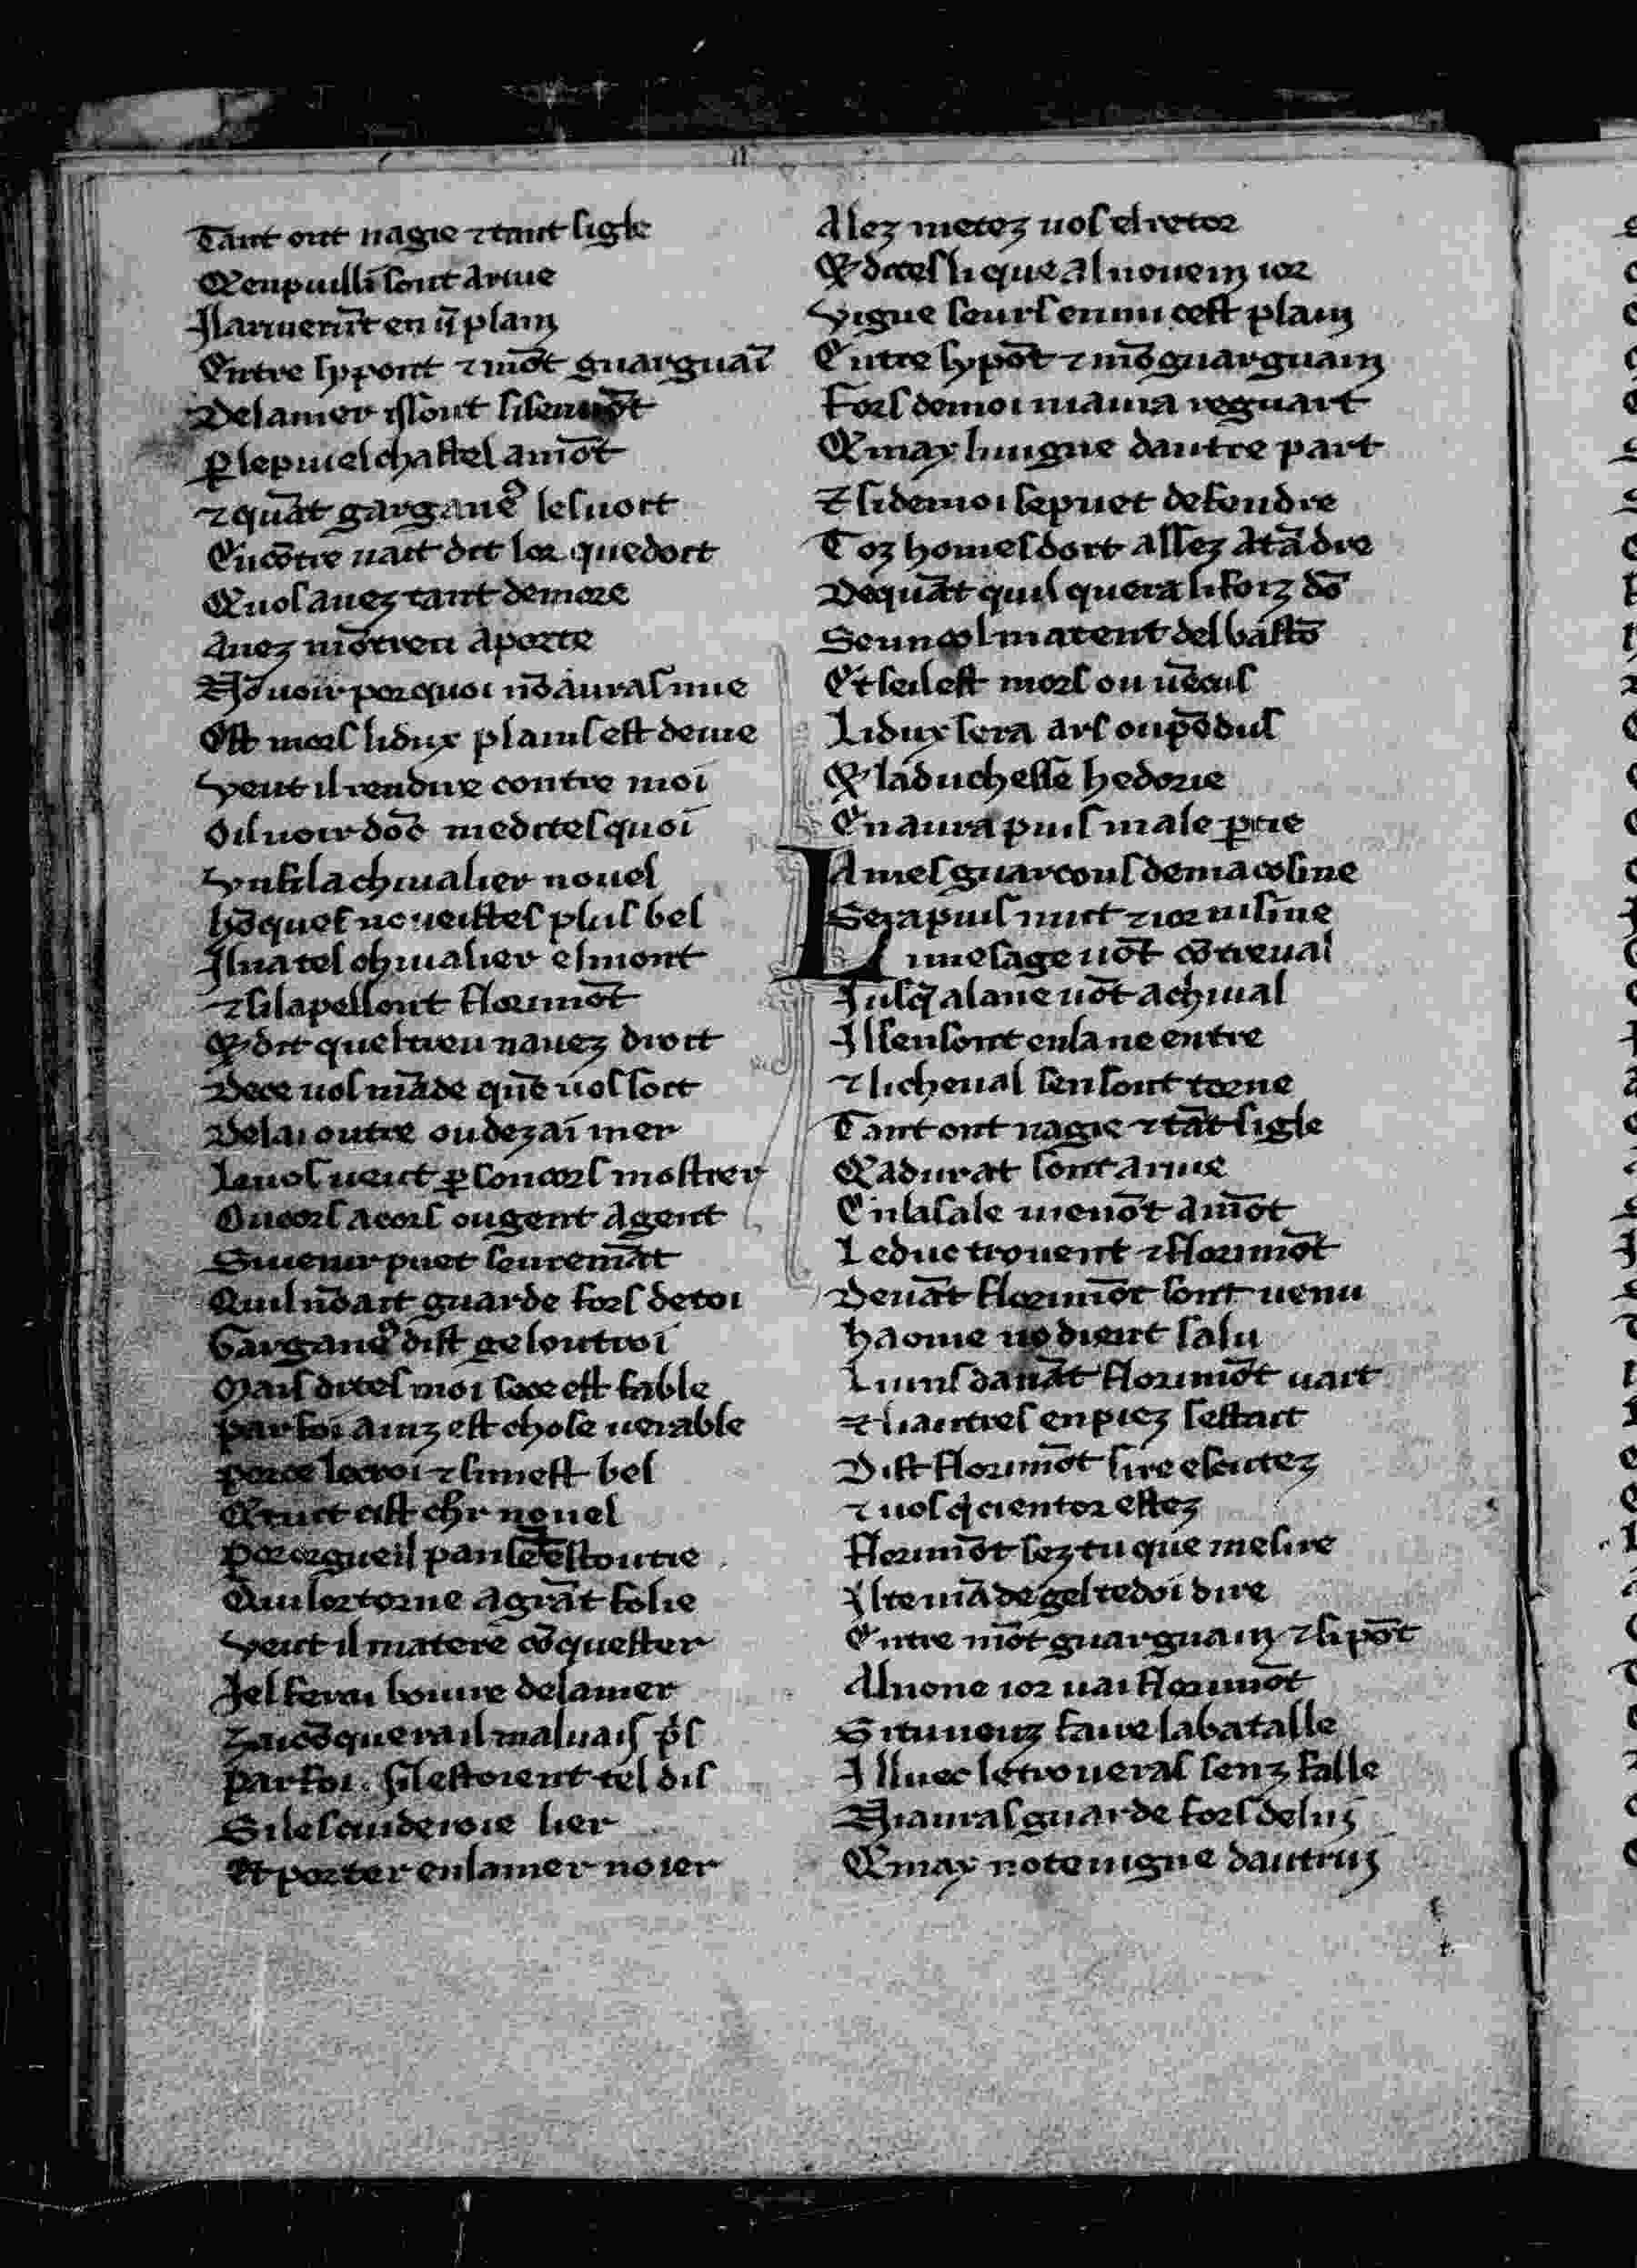 Tant ont nagie ⁊ tant sigle
Qenpuilli sont ariue
Ilariuerūt en .i. plain
Entre sypont ⁊ mōt guarguaī
Delamer issont silen uōt
ꝑ lepuielchastel amōt
⁊ quāt garganeˀ lesuoit
Encōtre uait dit lor quedoit
Quosauez tant demore
Auez mōtreu aporte
Nō uoir porquoi nō auras mie
Est mors lidux plains est deuie
Veut il rendre contre moi
Oil uoir dōc meditesquoi
Vnfilachiualier nouel
hōques no ueistes plus bel
Ilna tel chiualier elmont
⁊ silapellont florimōt
Qͥ dit queltreu nauez droit
Dece uos māde quē uos soit
Delai outre ou dezai mer
Leuos ueut ꝑ soncors mostrer
Oucors acors ougent agent
Siuenir puet seuremāt
Quil nōait guarde fors detoi
Garganeˀ dist geloutroi
Mais dites moi sece est fable
par foi ainz est chose uerable
porce locroi ⁊ simest bel
Qtuit cist chr nouel
por orgueil panse estoutie
Qui lortorne agrāt folie
Veut il materē cōquester
Jel ferai boiure delamer
Zaicōquerail maluais pͥs
par foi . silestoient tel dis
Silescuideroie lier
Et porter enlamer noier
Alez metez uos elretor
Qͥ dites li que al nouein ior
Vigne seurs enmi cest plain
Entre sypōt ⁊ mōguarguain
Fors demoi maura reguart
Qmay liuigne dautre part
⁊ sidemoi sepuet defendre
Toz homes doit assez atādre
Dequāt quil querali forz dō
Seuncol matent delbastō
Et seilest mors ou uēcus
Lidux sera ars oupēdus
Qͥ laduchesse hedorie
Enaura puis male ꝑtie
A mes guarcons demacosine
Sera puis nuit ⁊ ior uisine
Li mesage uōt cōtreual
Jusqͣ alane uōt achiual
Il sensont enla ne entre
⁊ licheual sensont torne
Tant ont nagie ⁊ tāt sigle
Qadurat sont ariue
Enlasale menōt amōt
Leduc trouent ⁊ florimōt
Deuāt florimōt sont uenu
haome no dient salu
Liuns dauāt florimōt uait
⁊ liautres enpiez sestait
Dist florimōt sire escutez
⁊ uos qͥ cientor estez
florimōt sez tu que mesire
Ilte māde gel tedoi dire
Entre mōt guarguain ⁊ sipōt
Alnone ior uai florimōt
Situuouz faire labatalle
Illuec letroueras senz falle
Niauras guarde fors delui
Qmay notenigne dautrui